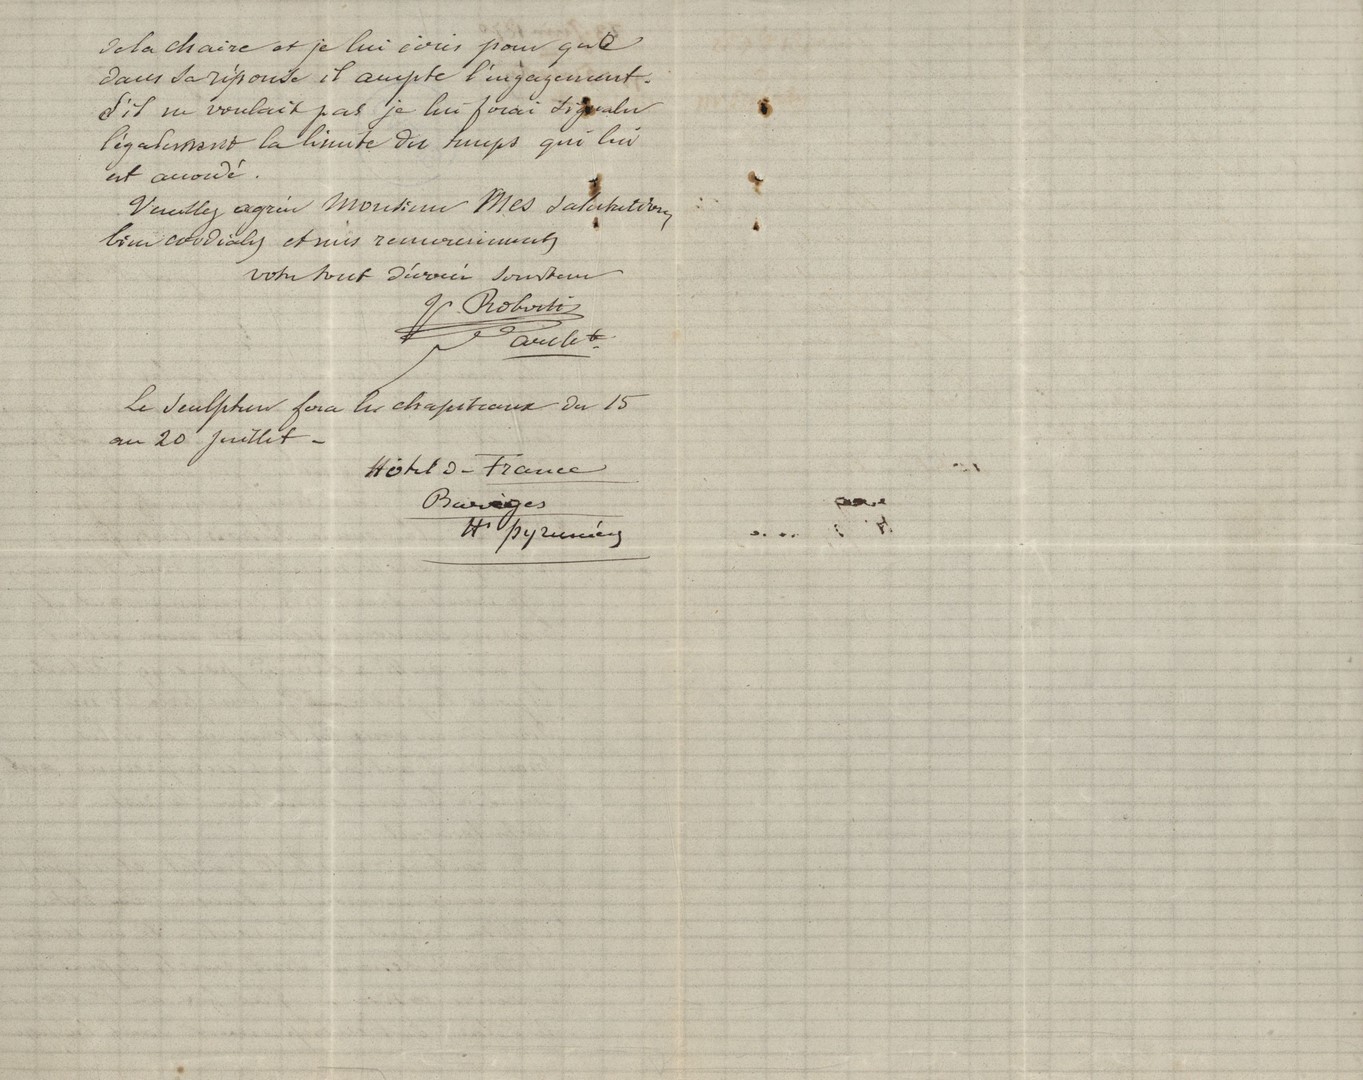 de la chaire et je lui écris pour que
dans sa réponse il accepte l'engagement.
S'il ne voulait pas je lui ferai signaler
légalement la limite du temps qui lui
est accordé.
Veuillez agréer Monsieur Mes salutations
bien cordiales et mes remerciements
votre tout dévoué serviteur
Roberti
archte
Le sculpteur fera les chapiteaux du 15
au 20 juillet -
Hôtel de France
Barèges
Hts pyrénées